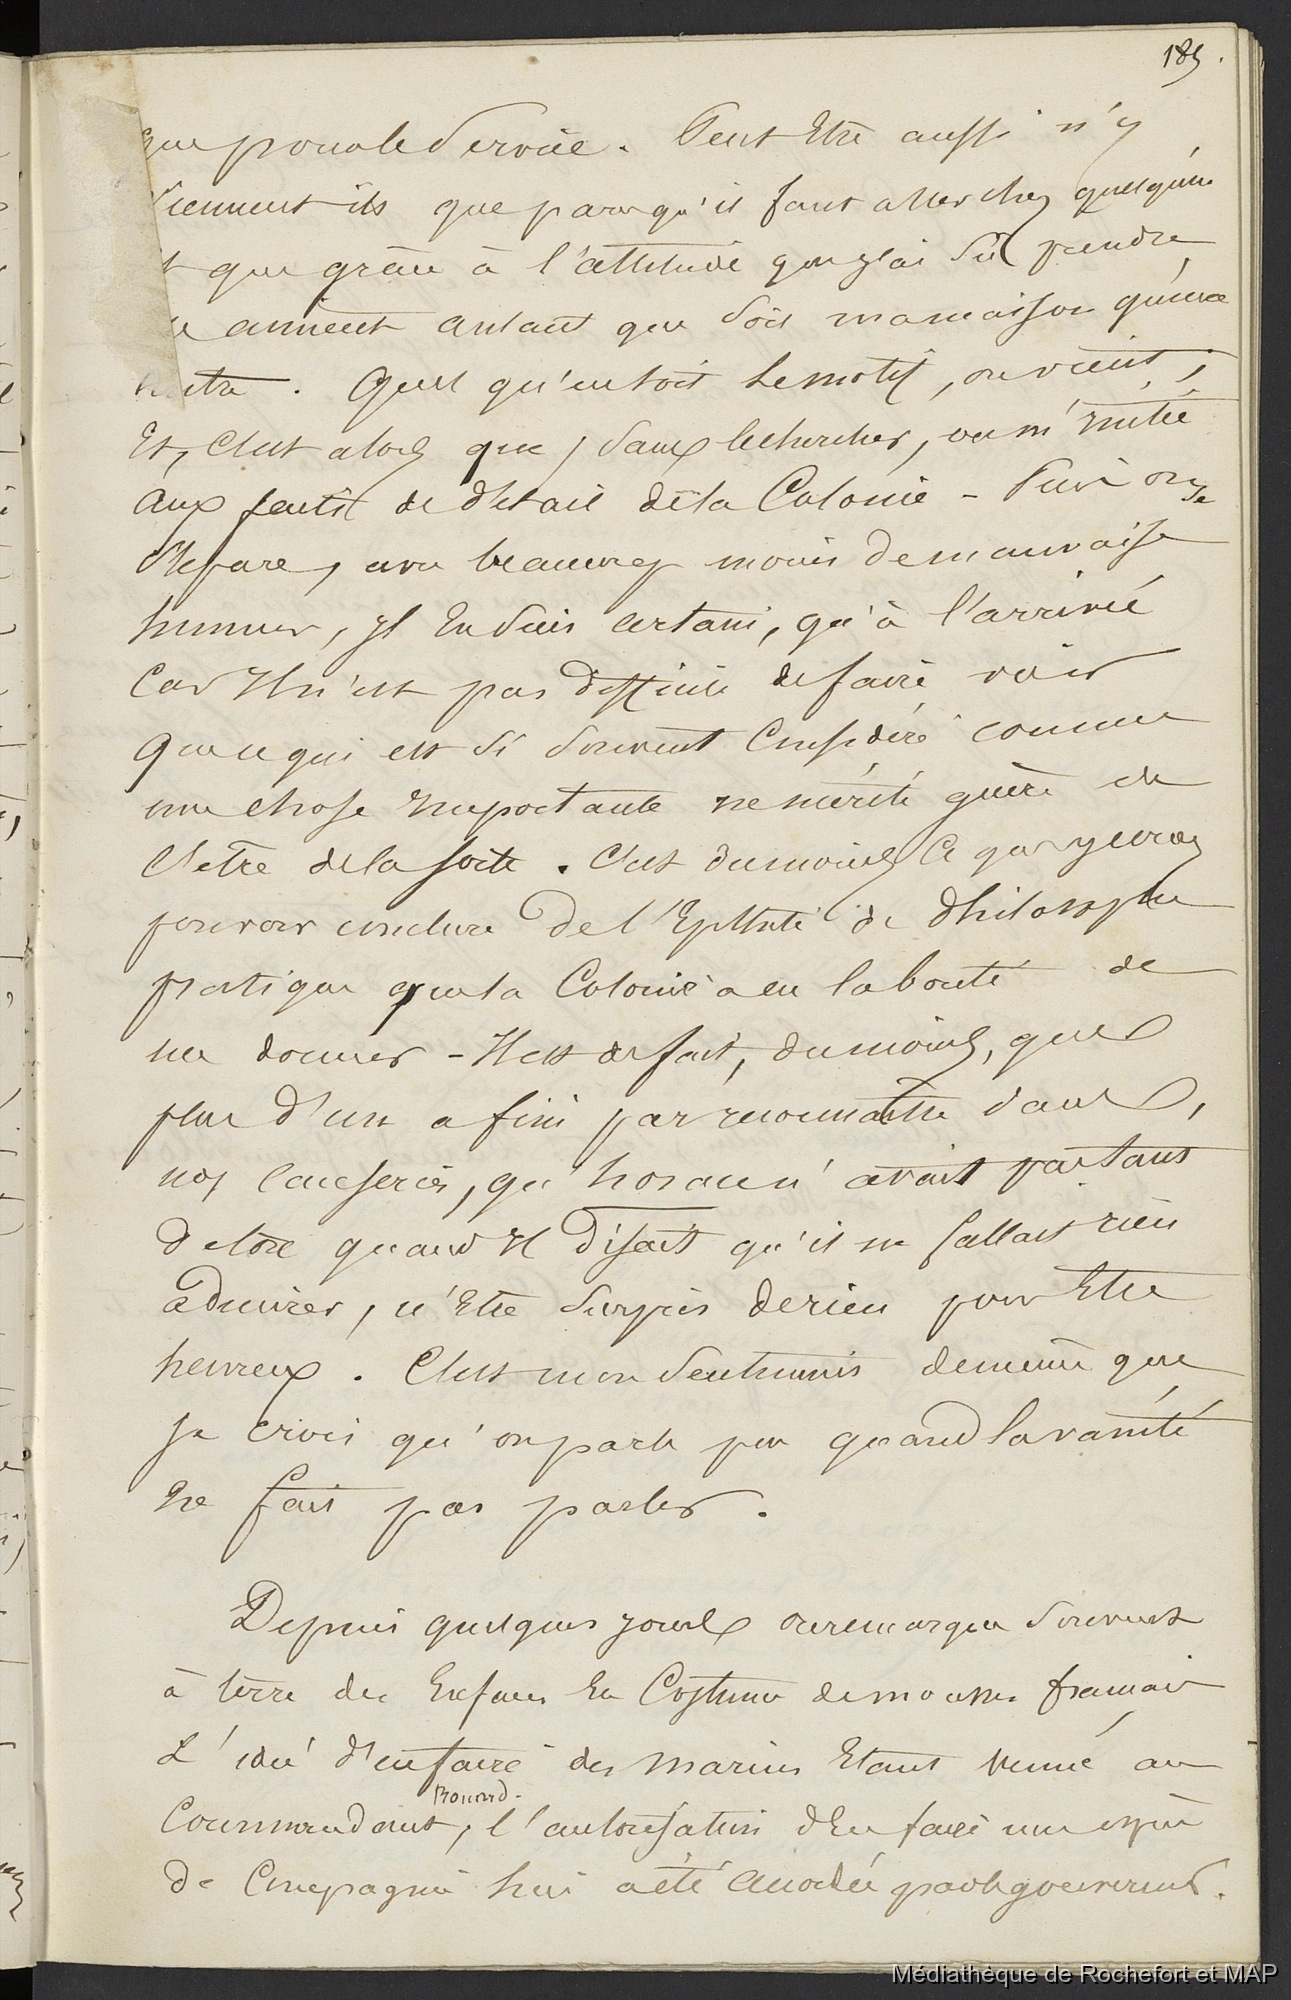 189.
que pour le Service. Peut Etre aussi n'y
viennent ils que parcequ'il faut aller chez quelqu'un
et que grâce à l'attitude que j'ai Sû prendre
aiment autant que Soit ma maison qu'une
autre. Quel qu'en soit le motif, on vient,
Et, C'est alors que, Sans le chercher, on m'initie
aux petits de détail de la Colonie - Puis on se
Sépare, avec beaucoup moins de mauvaise
humeur, j'En Suis certain, qu'à l'arrivée
Car Il n'est pas difficile de faire voir
que ce qui est Si Souvent Considéré comme
une chose Importante ne mérite guère de
l'etre de la sorte. C'est du moins Ce que je crois
pouvoir conclure de l'Epithète de Philosophe
pratique que la Colonie a eu la bonté de
me donner - Il est de fait, du moins, que
plus d'un a fini par reconnaitre dans
nos Causeries, qu'horace n'avait pas tant
de tort quand Il disait qu'il ne fallait rien
admirer, n'Etre Surpris de rien pour Etre
heureux. C'est mon Sentiment de même que
je crois qu'on parle peu quand la vanité
ne fait pas parler.
Depuis quelques jours on remarque Souvent
à terre des Enfans En Costume de mousses français
L'idée d'en faire des marins Etant venue au
Bonard.
Commandant, l'autorisation d'En faire une espèce
de Compagnie lui a été accordée par le gouvernement.
Médiathèque de Rochefort et MAP